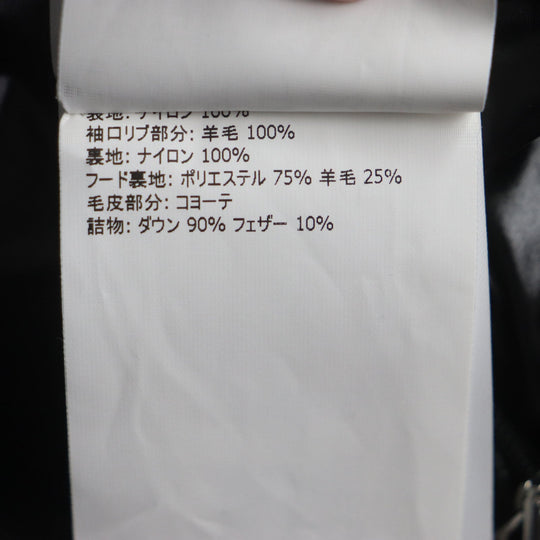 裏地: ナイロン 100%
袖口リブ部分: 羊毛 100%
裏地: ナイロン 100%
フード裏地: ポリエステル 75% 羊毛 25%
毛皮部分: コヨーテ
詰物: ダウン 90% フェザー 10%